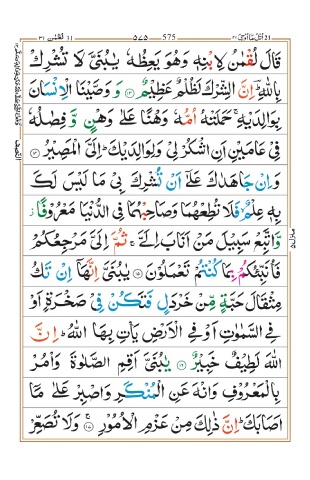 ٣١ لقمٰن
٥٧٥
575
قَالَ لُقْمٰنُ لِابْنِهٖ وَهُوَ يَعِظُهٗ يٰبُنَيَّ لَا تُشْرِكْ
بِاللّٰهِ ؕ اِنَّ الشِّرْكَ لَظُلْمٌ عَظِيْمٌ ﴿۱۳﴾ وَ وَصَّيْنَا الْاِنْسَانَ
بِوَالِدَيْهِ ۚ حَمَلَتْهُ اُمُّهٗ وَهْنًا عَلٰى وَهْنٍ وَّ فِصٰلُهٗ
فِيْ عَامَيْنِ اَنِ اشْكُرْ لِيْ وَلِوَالِدَيْكَ ؕ اِلَيَّ الْمَصِيْرُ ﴿۱۴﴾
وَاِنْ جَاهَدٰكَ عَلٰٓى اَنْ تُشْرِكَ بِيْ مَا لَيْسَ لَكَ
بِهٖ عِلْمٌ ۙ فَلَا تُطِعْهُمَا وَصَاحِبْهُمَا فِي الدُّنْيَا مَعْرُوْفًا ؗ
وَّاتَّبِعْ سَبِيْلَ مَنْ اَنَابَ اِلَيَّ ۚ ثُمَّ اِلَيَّ مَرْجِعُكُمْ
فَاُنَبِّئُكُمْ بِمَا كُنْتُمْ تَعْمَلُوْنَ ﴿۱۵﴾ يٰبُنَيَّ اِنَّهَا اِنْ تَكُ
مِثْقَالَ حَبَّةٍ مِّنْ خَرْدَلٍ فَتَكُنْ فِيْ صَخْرَةٍ اَوْ
فِي السَّمٰوٰتِ اَوْ فِي الْاَرْضِ يَاْتِ بِهَا اللّٰهُ ؕ اِنَّ
اللّٰهَ لَطِيْفٌ خَبِيْرٌ ﴿۱۶﴾ يٰبُنَيَّ اَقِمِ الصَّلٰوةَ وَاْمُرْ
بِالْمَعْرُوْفِ وَانْهَ عَنِ الْمُنْكَرِ وَاصْبِرْ عَلٰى مَآ
اَصَابَكَ ؕ اِنَّ ذٰلِكَ مِنْ عَزْمِ الْاُمُوْرِ ﴿۱۷﴾ وَلَا تُصَعِّرْ